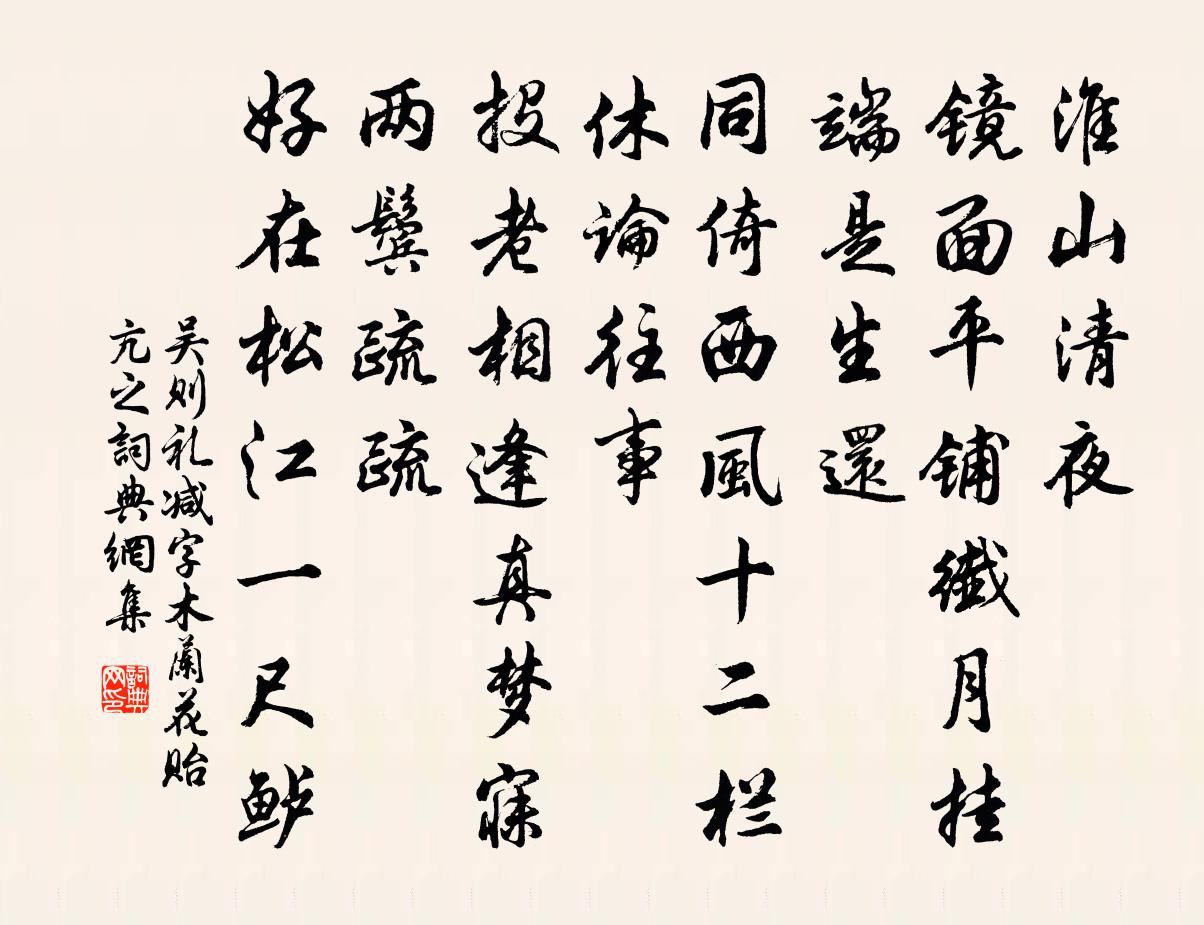 淮山清夜
镜面平铺纎月挂
端是生還
同倚西風十二栏
休論往事
投老相逢真梦寐
两鬓疏疏
好在松江一尺鲈
吴则礼减字木蘭花貽
亢之詞典網集
詞典网印